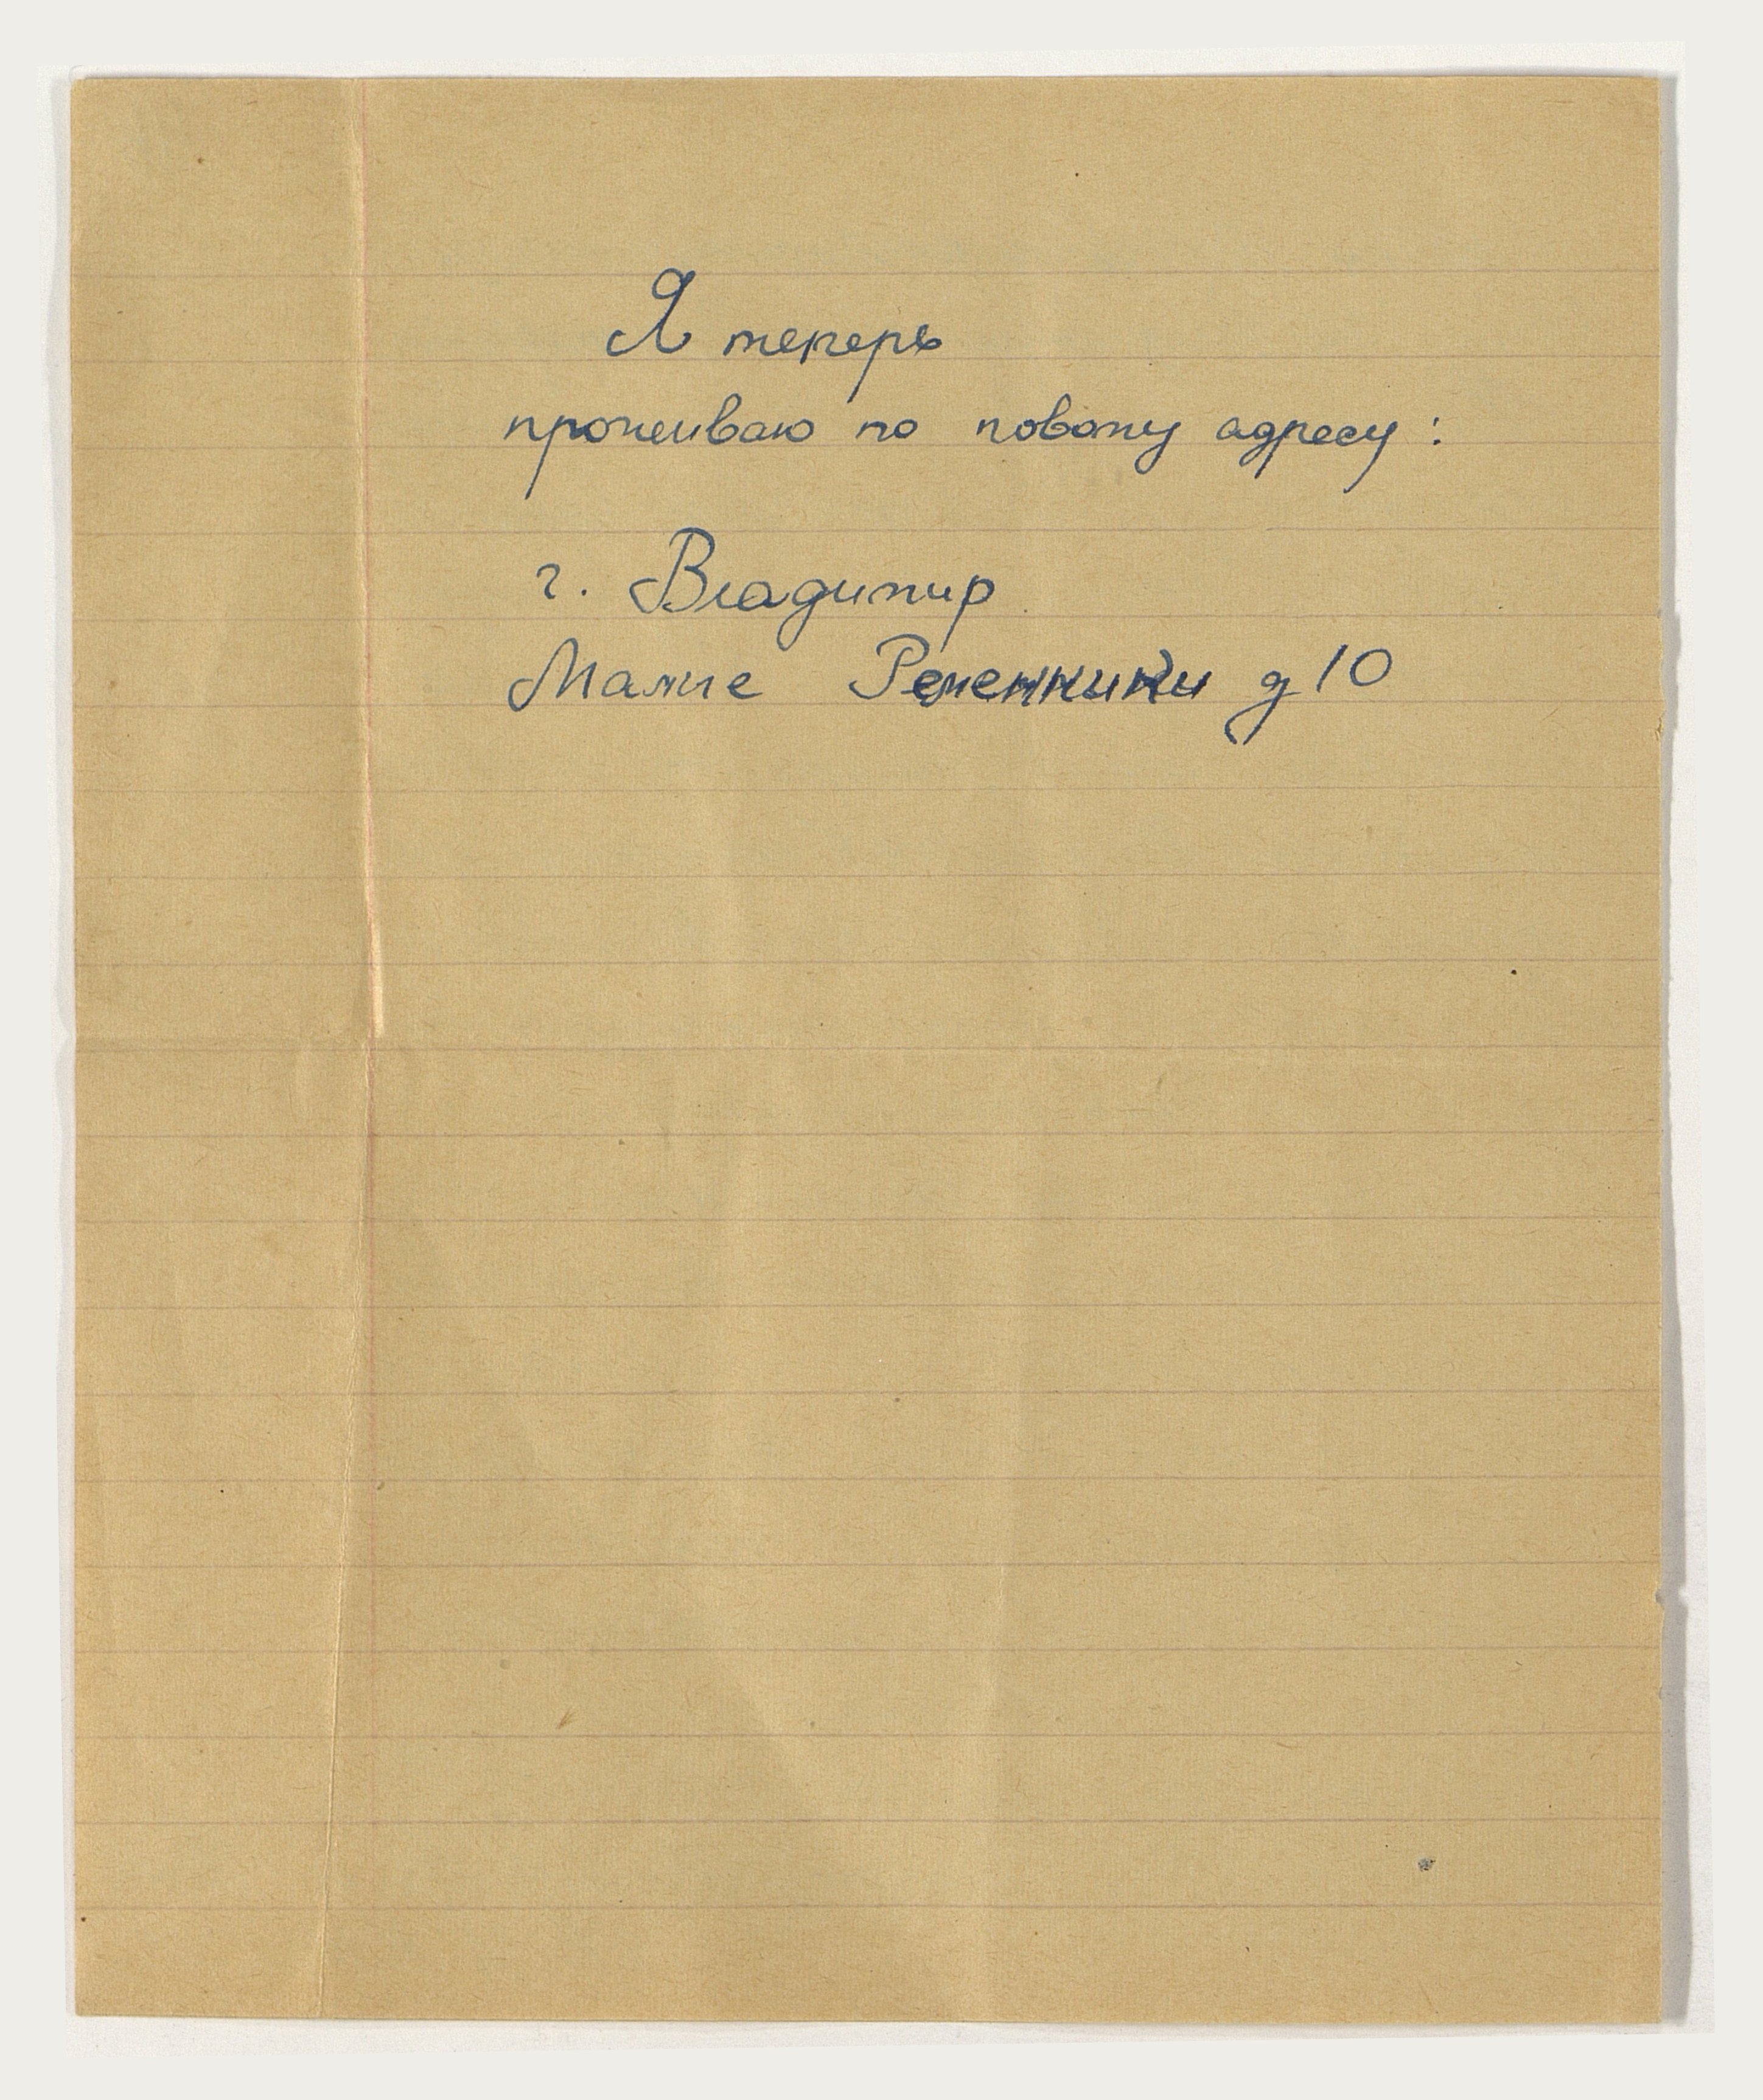 Я теперь
проживаю по новому адресу:
г. Владимир
Малые Ременники д 10